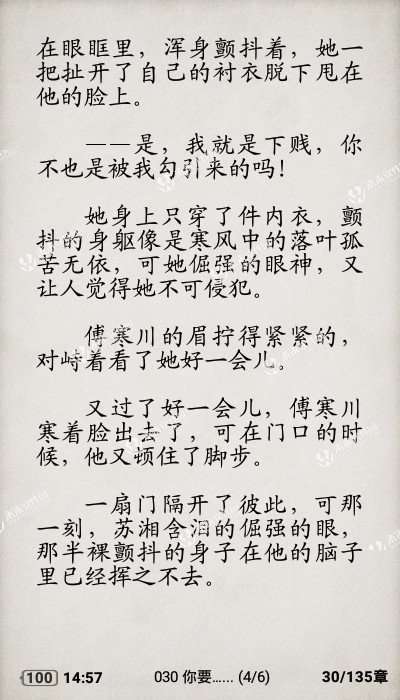 在眼眶里，浑身颤抖着，她一
把扯开了自己的衬衣脱下甩在
他的脸上。
——是，我就是下贱，你
不也是被我勾引来的吗！
她身上只穿了件内衣，颤
抖的身躯像是寒风中的落叶孤
苦无依，可她倔强的眼神，又
让人觉得她不可侵犯。
傅寒川的眉拧得紧紧的，
对峙着看了她好一会儿。
又过了好一会儿，傅寒川
寒着脸出去了，可在门口的时
候，他又顿住了脚步。
一扇门隔开了彼此，可那
一刻，苏湘含泪的倔强的眼，
那半裸颤抖的身子在他的脑子
里已经挥之不去。
100 14:57 030 你要…... (4/6) 30/135章